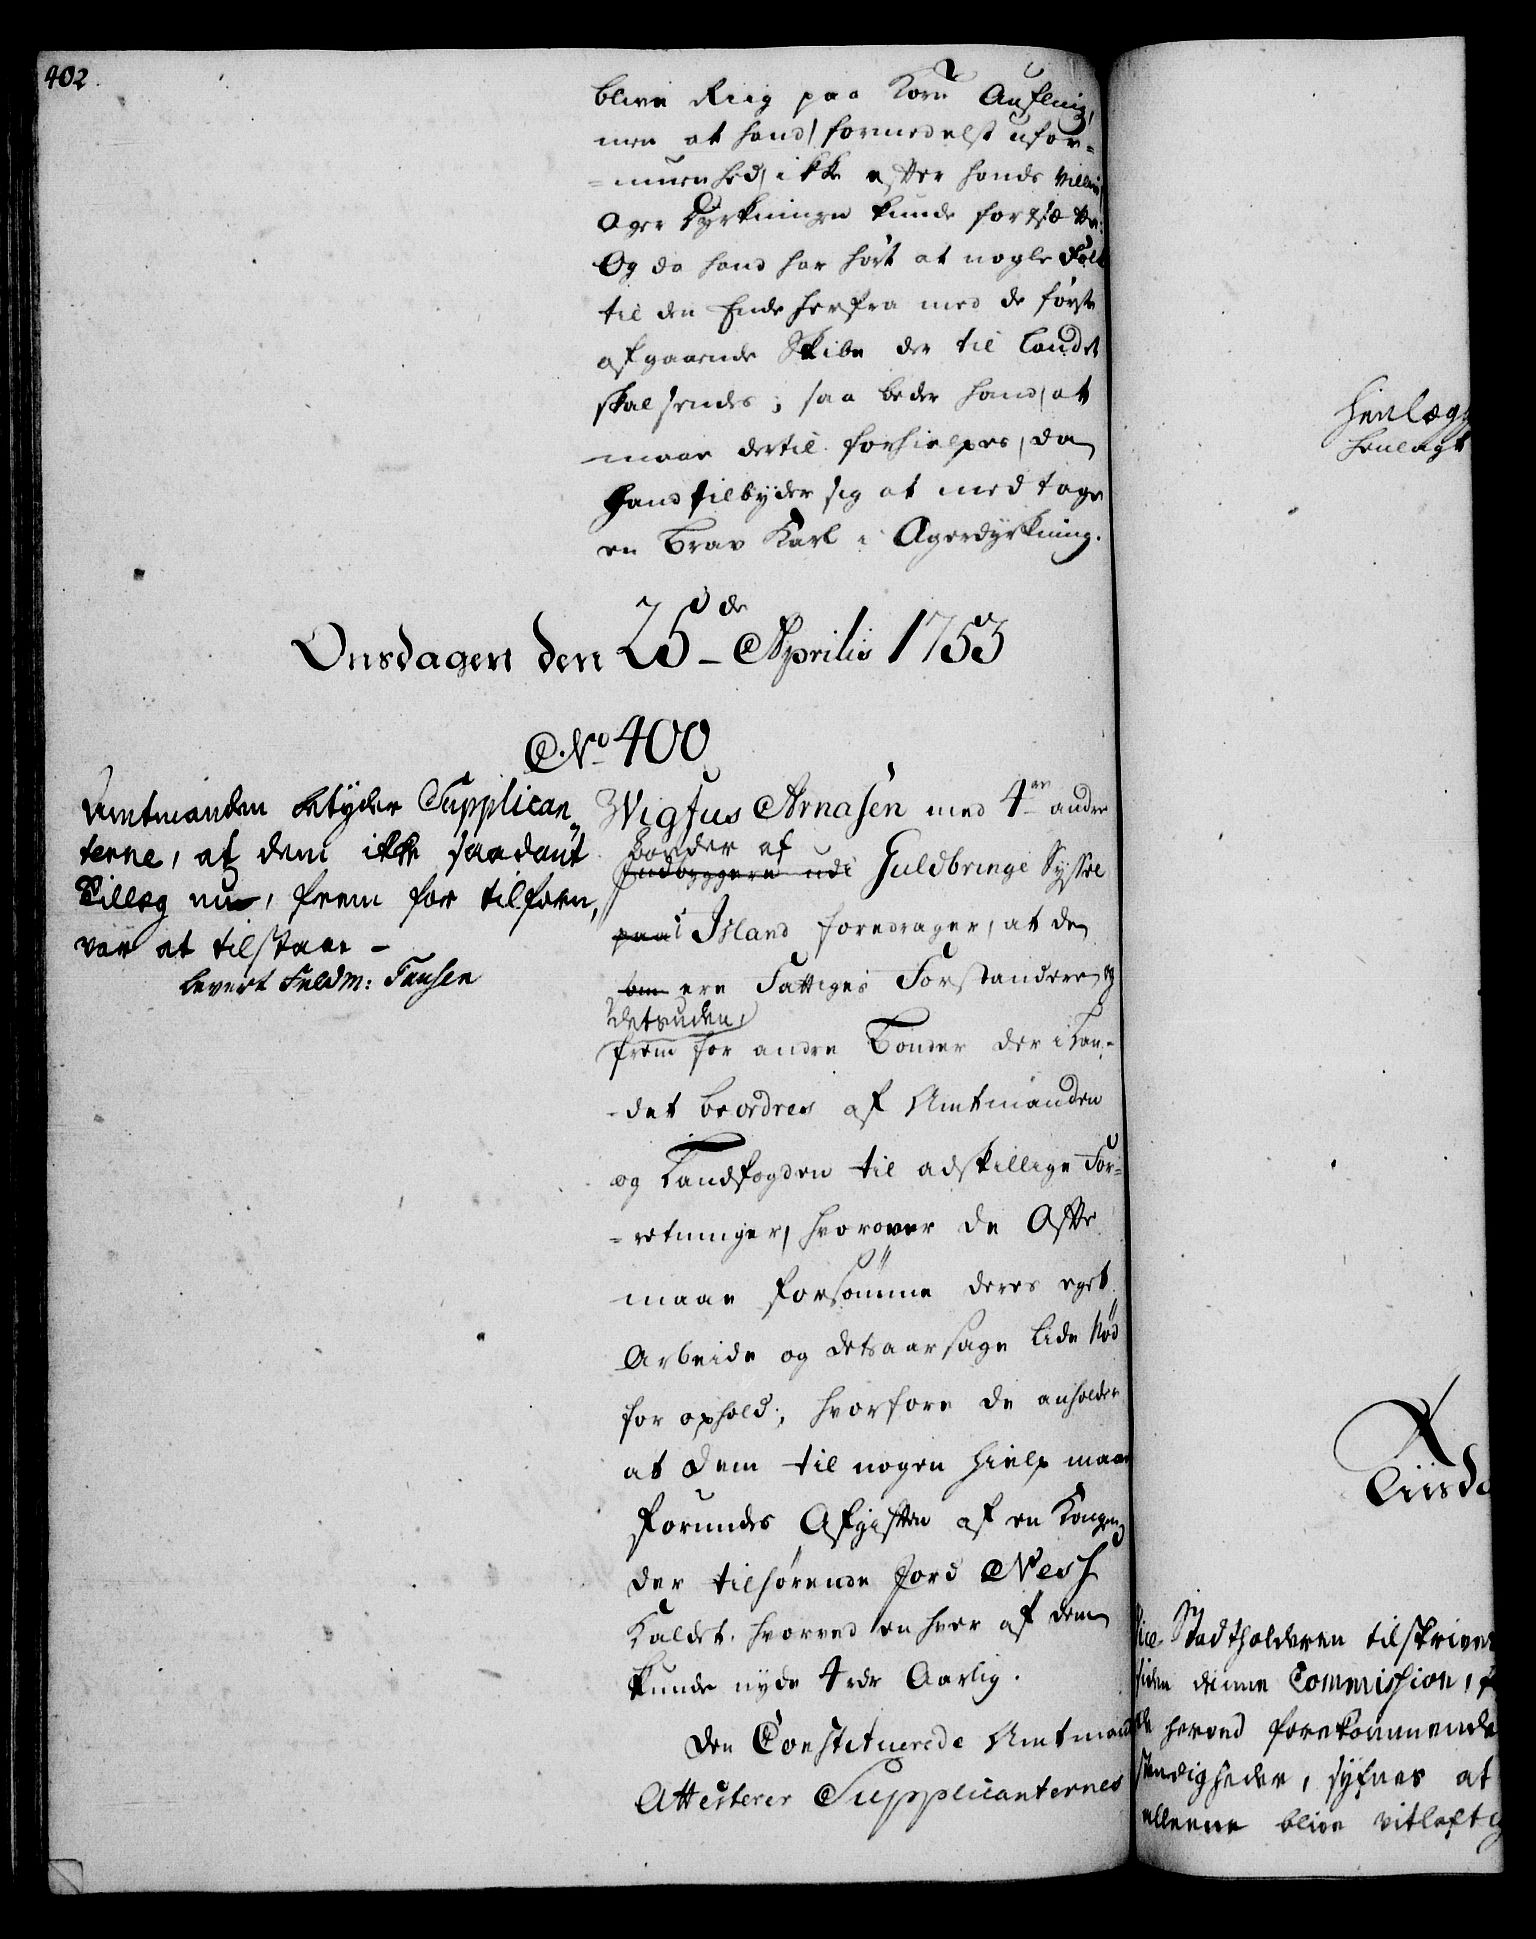 402.
blive Riig paa Korn Aufling,
men at hand, formedelst ufor-
=muenhed, ikke efter hands Villie
Ager Dyrkningen kunde fortsætte:
Og da hand har hört at nogle Folk
til den Ende herfra med de förste
afgaaende Skibe der til Landet
skal sendes; saa beder hand, at
maae dertil forhielpes, da
Hand tilbyder sig at med tage
en brav Karl i Agerdyrkning.
Onsdagen den 25de Aprilis 1753
No 400
Amtmanden betyder Supplican„
terne, at dem ikke saadant
Tillæg nu, frem for tilforn,
var at tilstaae -
levert Fuldm: Fansen
Wigfus Arnasen med 4re andre
bönder af
Indbyggere udi Guldbringe Syssel
paa i Island foredrager, at de
som ere Fattiges Forstandere, og
desuden,
frem for andre Bönder der i Lan-
-det beordres af Amtmanden
og Landfogden til adskillige For-
=retninger, hvorover de Offte
maae forsömme deres eget
Arbeide og detsaarsage lide Nöd
for ophold; hvorfore de anholder
at dem til nogen Hielp maae
forundes Afgiften af en Kongen
der tilhörende Jord Ness
kaldet. hvorved en hver af dem
kunde nyde 4 rdr Aarlig.
Den Constituerede Amtmand
Attesterer Supplicanternes
Henlægg
henlagt
Tiisda
Vice-Stadtholderen tilskrives
siden denne Commission, f
de herved forekommende
stændigheder, synes at
alleene blive vitløftig